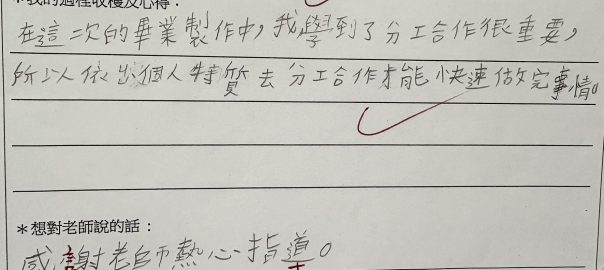 *我的過程收穫及心得:
在這一次的畢業製作中,我學到了分工合作很重要,
所以依出個人特質去分工合作才能快速做完事情。
*想對老師說的話:
感謝老師熱心指導。